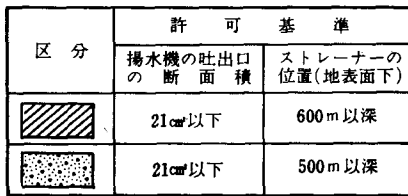 区分
許可基準
揚水機の吐出口
の断面積
ストレーナーの
位置(地表面下)
21cm²以下
600m以深
21cm²以下
500m以深